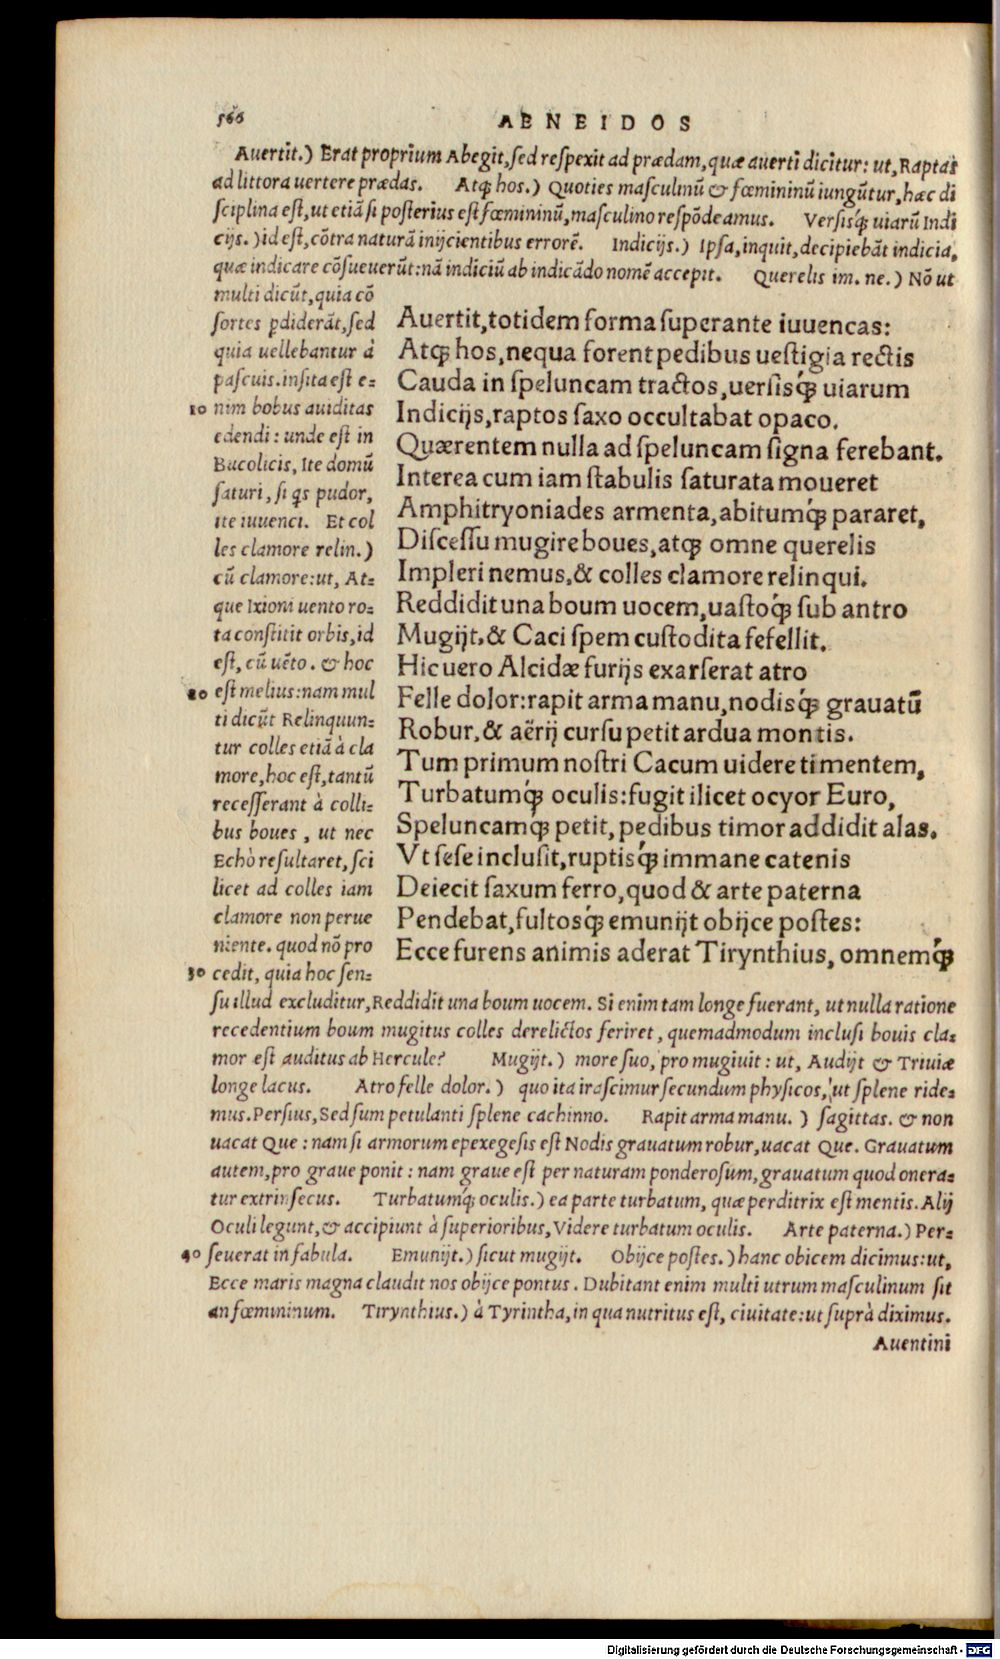 566
AENEIDOS
Auertit.) Erat proprium Abegit, sed respexit ad prædam, quæ auerti dicitur: ut, Raptas
ad littora uertere prædas. Atq; hos.) Quoties masculinũ & fœmininũ iungũtur, hæc di
sciplina est, ut etiã si posterius est fœmininũ, masculino respõdeamus. Versisq́; uiarũ Indi
cijs.) id est, cõtra naturã inijcientibus errorẽ. Indicijs.) Ipsa, inquit, decipiebãt indicia,
quæ indicare cõsueuerũt: nã indiciũ ab indicãdo nomẽ accepit. Querelis im. ne.) Nõ ut
multi dicũt, quia cõ
sortes ꝑdiderãt, sed
quia uellebantur à
pascuis. insita est e=
10 nim bobus auiditas
edendi: unde est in
Bucolicis, Ite domũ
saturi, si qs pudor,
ite iuuenci. Et col
les clamore relin.)
cũ clamore: ut, At=
que Ixioni uento ro=
ta constitit orbis, id
est, cũ uẽto. & hoc
20 est melius: nam mul
ti dicũt Relinquun=
tur colles etiã à cla
more, hoc est, tantũ
recesserant à colli=
bus boues, ut nec
Echò resultaret, sci
licet ad colles iam
clamore non perue
niente. quod nõ pro
30 cedit, quia hoc sen=
Auertit, totidem forma superante iuuencas:
Atq; hos, nequa forent pedibus uestigia rectis
Cauda in speluncam tractos, uersisq́; uiarum
Indicijs, raptos saxo occultabat opaco.
Quærentem nulla ad speluncam signa ferebant.
Interea cum iam stabulis saturata moueret
Amphitryoniades armenta, abitumq́; pararet,
Discessu mugire boues, atq; omne querelis
Impleri nemus, & colles clamore relinqui.
Reddidit una boum uocem, uastoq́; sub antro
Mugijt, & Caci spem custodita fefellit.
Hic uero Alcidæ furijs exarserat atro
Felle dolor: rapit arma manu, nodisq́; grauatũ
Robur, & aërij cursu petit ardua montis.
Tum primum nostri Cacum uidere timentem,
Turbatumq́; oculis: fugit ilicet ocyor Euro,
Speluncamq́; petit, pedibus timor addidit alas.
Vt sese inclusit, ruptisq́; immane catenis
Deiecit saxum ferro, quod & arte paterna
Pendebat, fultosq́; emunijt obijce postes:
Ecce furens animis aderat Tirynthius, omnemq́;
su illud excluditur, Reddidit una boum uocem. Si enim tam longe fuerant, ut nulla ratione
recedentium boum mugitus colles derelictos feriret, quemadmodum inclusi bouis cla=
mor est auditus ab Hercule? Mugijt.) more suo, pro mugiuit: ut, Audijt & Triuiæ
longe lacus. Atro felle dolor.) quo ita irascimur secundum physicos, ut splene ride=
mus. Persius, Sed sum petulanti splene cachinno. Rapit arma manu.) sagittas. & non
uacat Que: nam si armorum epexegesis est Nodis grauatum robur, uacat Que. Grauatum
autem, pro graue ponit: nam graue est per naturam ponderosum, grauatum quod onera=
tur extrinsecus. Turbatumq́; oculis.) ea parte turbatum, quæ perditrix est mentis. Alij
Oculi legunt, & accipiunt à superioribus, Videre turbatum oculis. Arte paterna.) Per=
40 seuerat in fabula. Emunijt.) sicut mugijt. Obijce postes.) hanc obicem dicimus: ut,
Ecce maris magna claudit nos obijce pontus. Dubitant enim multi utrum masculinum sit
an fœmininum. Tirynthius.) à Tyrintha, in qua nutritus est, ciuitate: ut suprà diximus.
Auentini
Digitalisierung gefördert durch die Deutsche Forschungsgemeinschaft - DFG